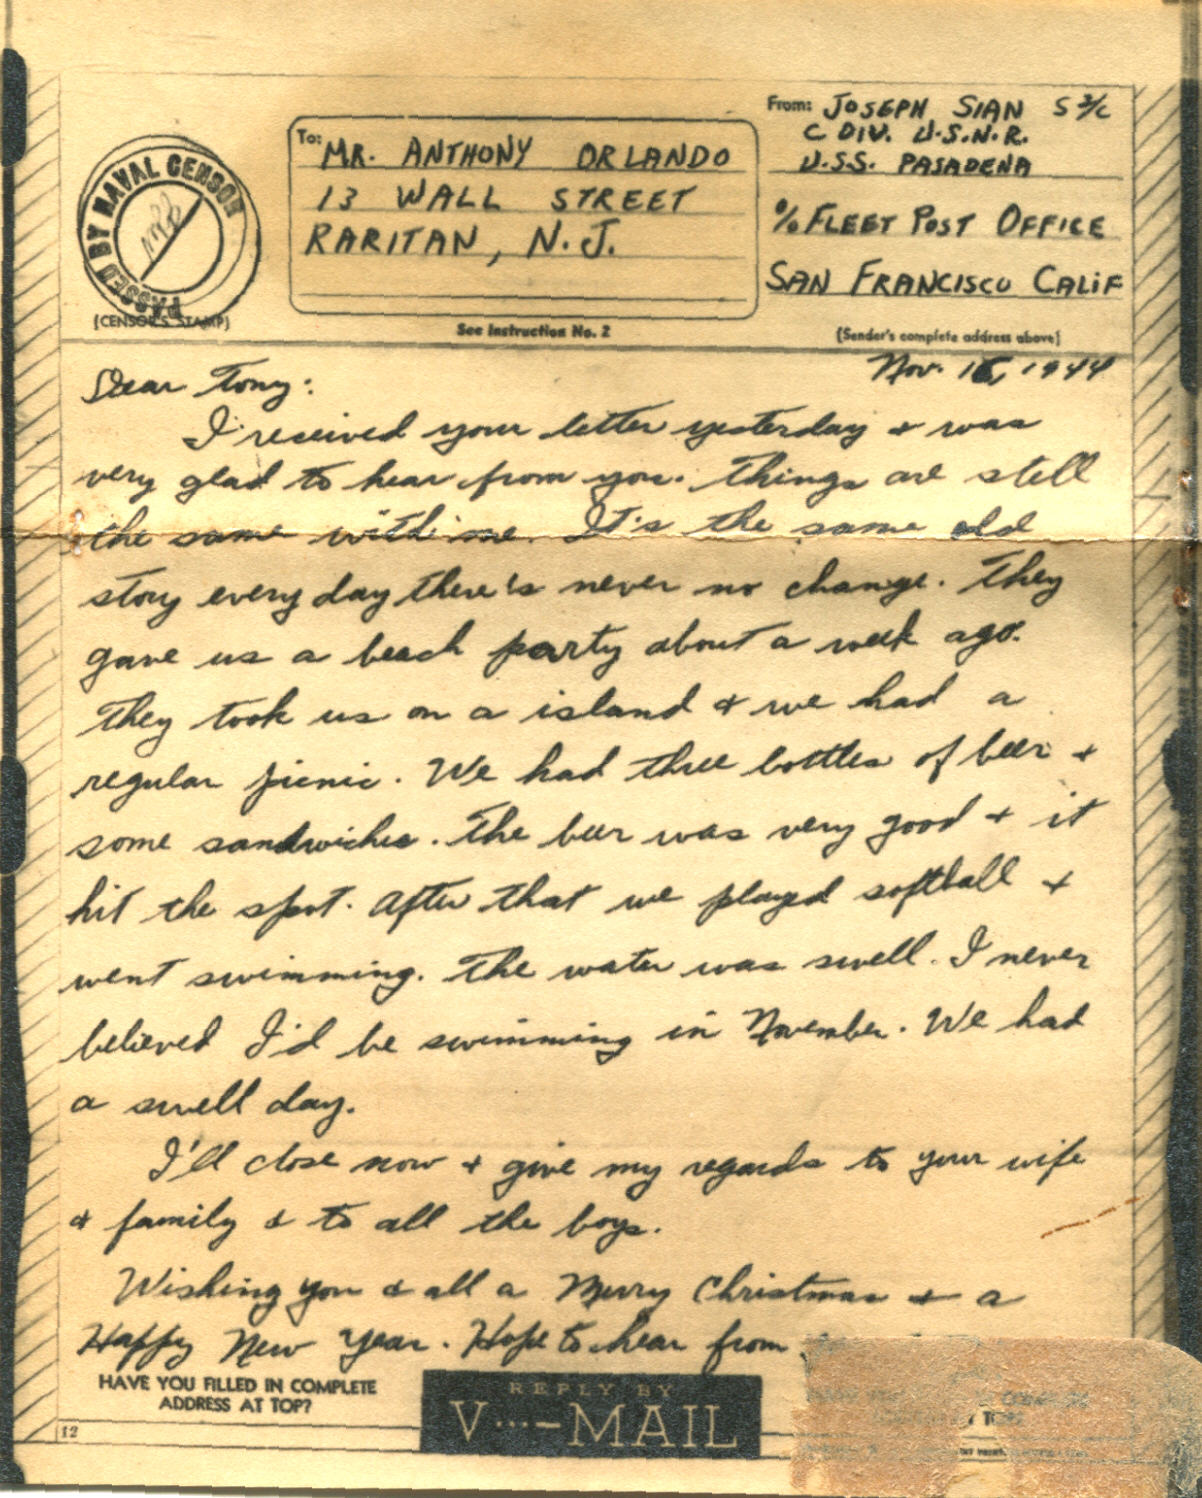 PASSED BY NAVAL CENSOR
(CENSOR'S STAMP)
To: MR. ANTHONY ORLANDO
13 WALL STREET
RARITAN, N.J.
See Instruction No. 2
From: JOSEPH SIAN S 2/C
C DIV. U.S.N.R.
U.S.S. PASADENA
% FLEET POST OFFICE
SAN FRANCISCO CALIF
(Sender's complete address above)
Nov. 1944
Dear Tony:
I received your letter yesterday & was
very glad to hear from you. Things are still
the same with me. It's the same old
story every day there's never no change. They
gave us a beach party about a week ago.
They took us on a island & we had a
regular picnic. We had three bottles of beer &
some sandwiches. The beer was very good & it
hit the spot. After that we played softball &
went swimming. The water was swell. I never
believed I'd be swimming in November. We had
a swell day.
I'll close now & give my regards to your wife
& family & to all the boys.
Wishing you & all a Merry Christmas & a
Happy New Year. Hope to hear from
HAVE YOU FILLED IN COMPLETE
ADDRESS AT TOP?
REPLY BY
V···—MAIL
12